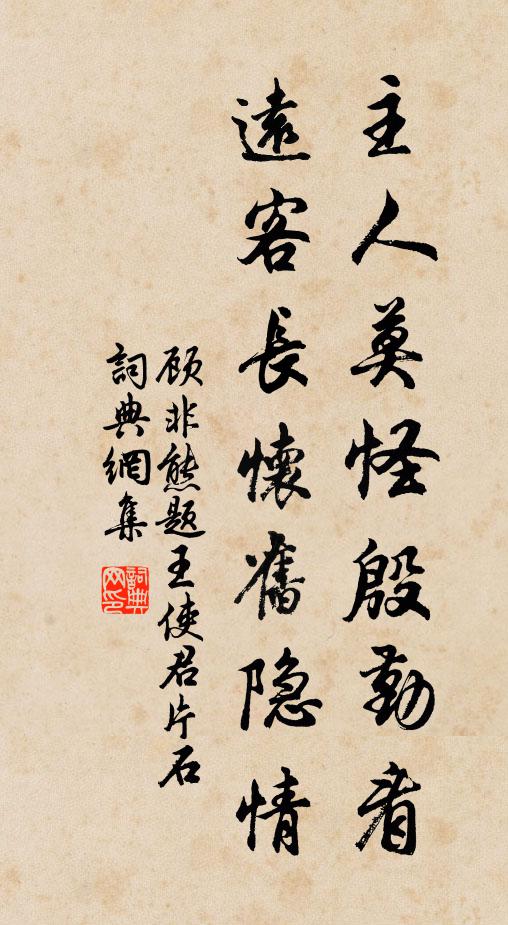 主人莫怪殷勤看
遠客長懷舊隐情
顾非熊题王使君片石
詞典網集
詞典網印